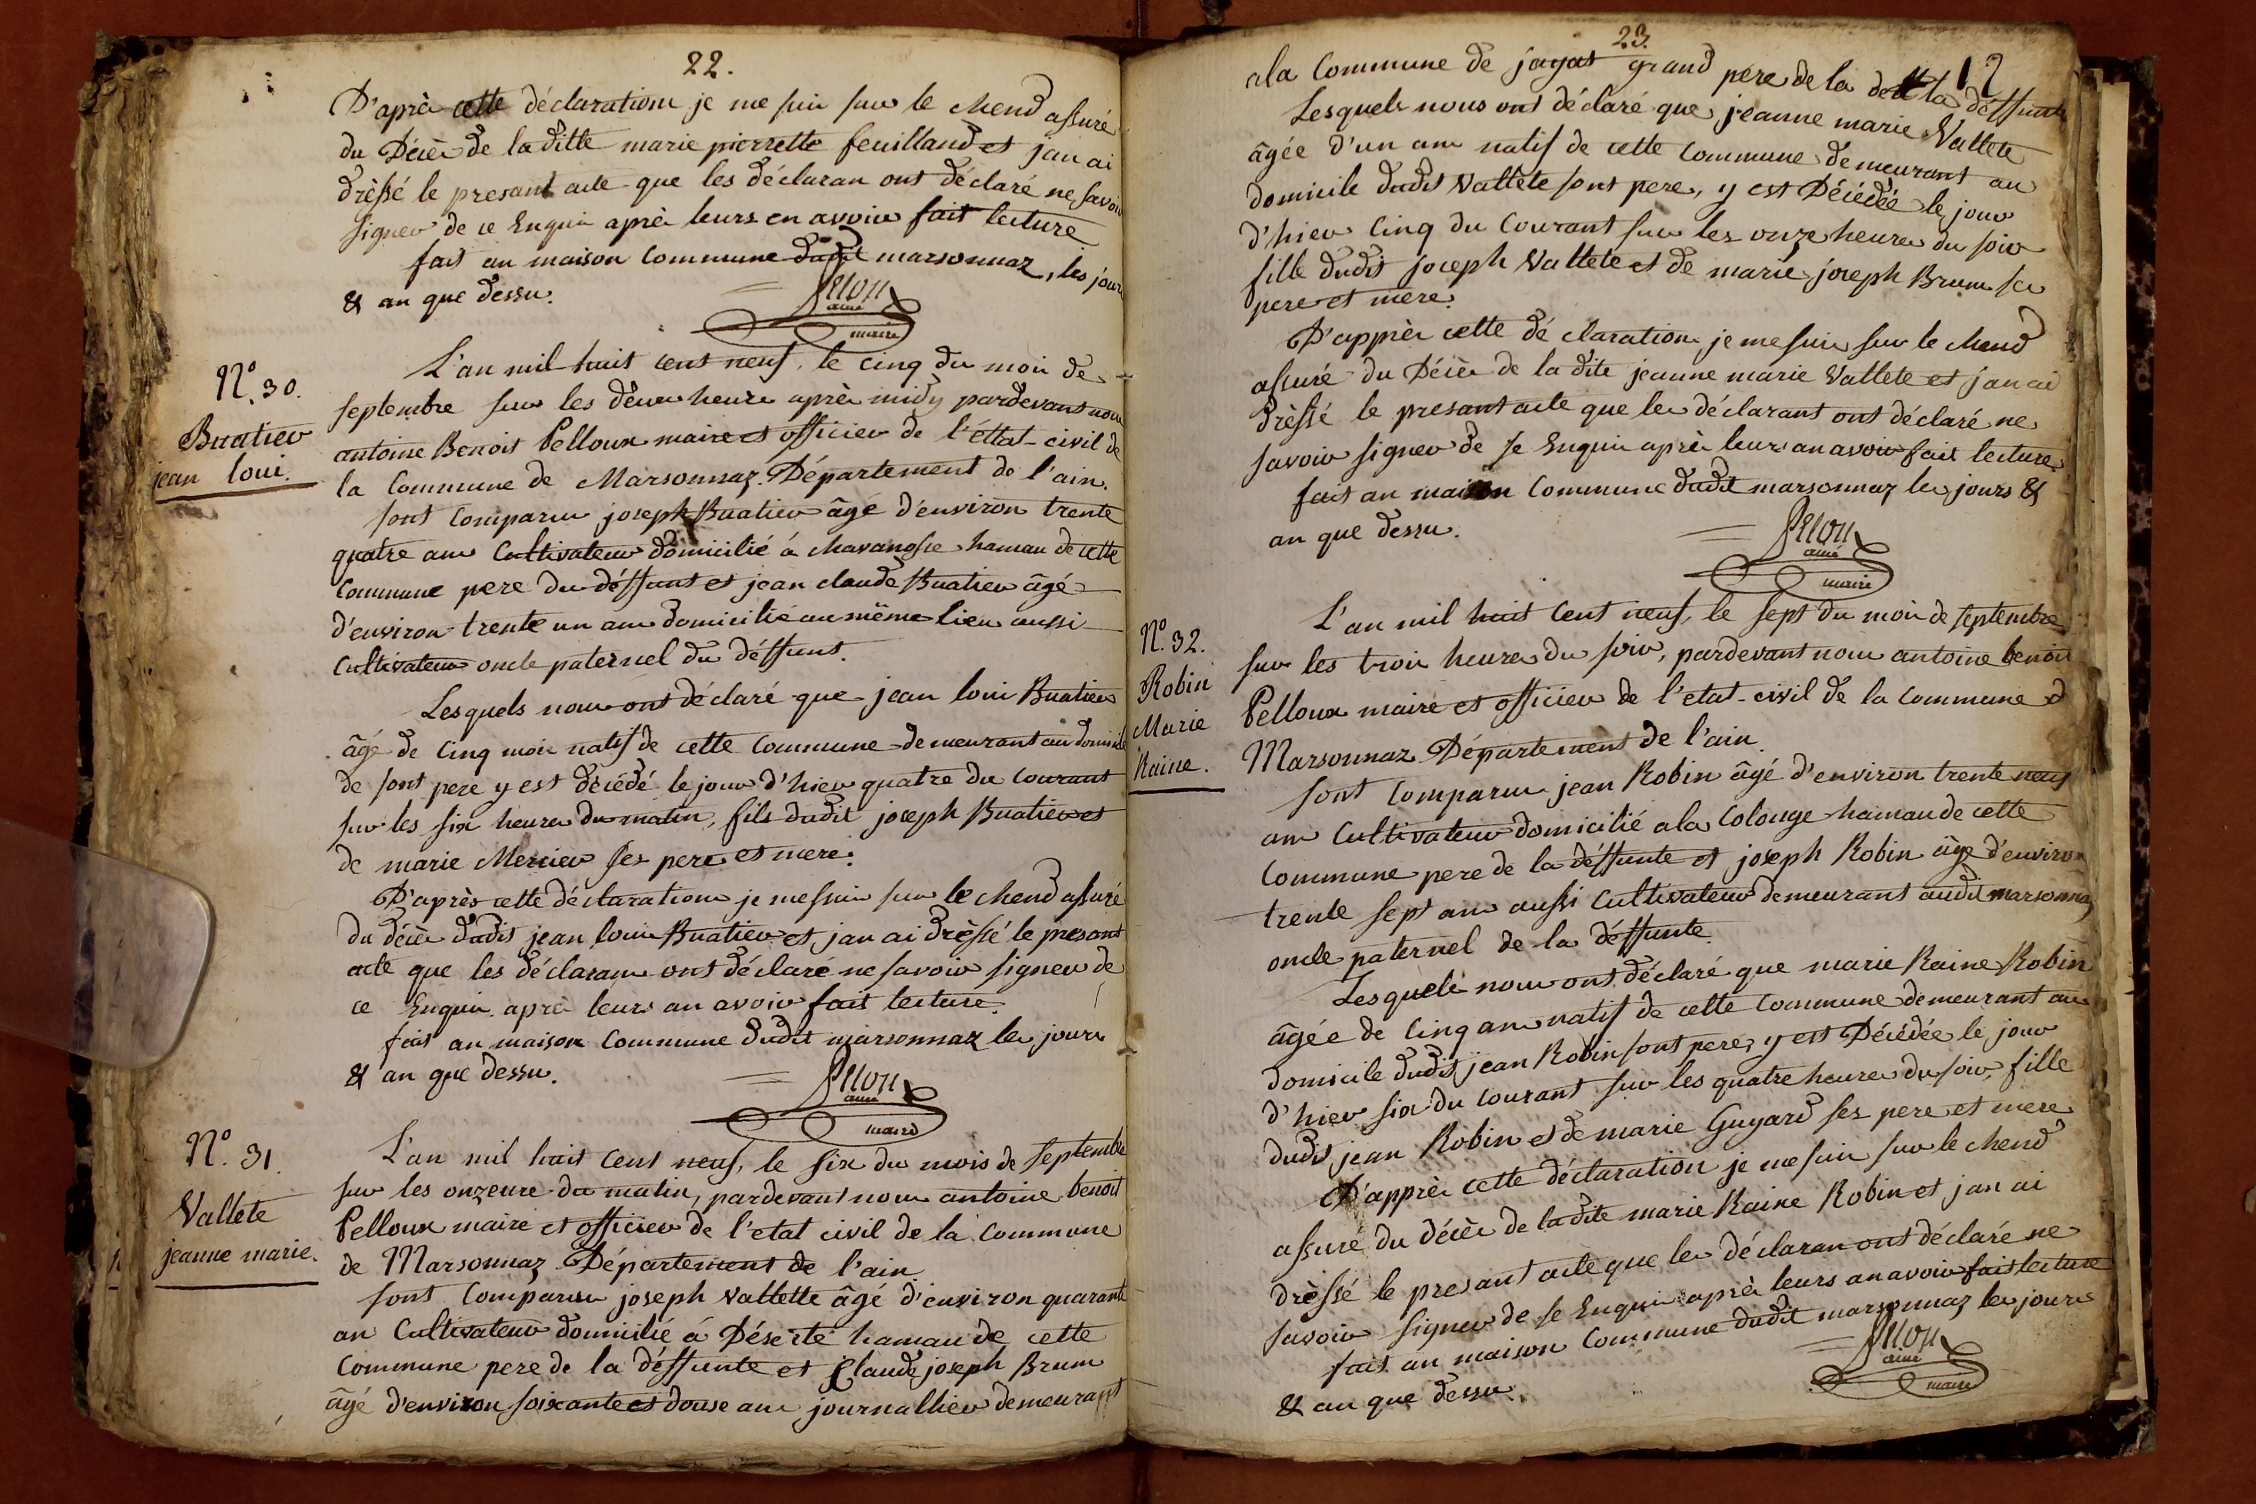 22.
D'après cette déclaration je me suis sur le chend assuré
du Décès de la ditte marie pierrette feuilland et jan ai
drèssé le presant acte que les déclaran ont déclaré ne savoir
signer de ce Enquis après leurs en avoir fait lecture
fait an maison Commune dudit marsonnaz, les jours
& an que dessu.
Pelloux
ainé
maire
N.º 30.
Buatier
jean loui.
L'an mil huit cent neuf, le cinq du mois de
septembre sur les deux heures après midy pardevant nous
antoine Benoit Pelloux maire et officier de l'éttat-civil de
la Commune de Marsonnaz. Département de l'ain.
sont Comparus joseph Buatier âgé d'environ trente
quatre ans Cultivateur domicilié à chavanosse hamau de cette
Commune pere du déffunt et jean claude Buatier âgé
d'environ trente un ans domicilié au même lieu aussi
Cultivateur oncle paternel du déffunt.
Lesquels nous ont déclaré que jean loui Buatier
âgé de cinq mois natif de cette Commune demeurant au domicile
de sont pere y est décédé le jour d'hier quatre du Courant
sur les six heures du matin, fils dudit joseph Buatier et
de marie Mercier ses pere et mere.
D'après cette déclaration je me suis sur le chend assuré
du décès dudit jean loui Buatier et jan ai drèssé le presant
acte que les déclarans ont déclaré ne savoir signer de
ce Enquis après leurs an avoir fait lecture.
fait an maison Commune dudit marsonnaz les jours
& an que dessu.
Pelloux
ainé
maire
N.º 31.
Vallete
jeanne marie.
L'an mil huit cent neuf, le six du mois de Septembre
sur les onzeure du matin, pardevant nous antoine benoit
Pelloux maire et officier de l'etat civil de la Commune
de Marsonnaz Département de l'ain
sont Comparus joseph Vallette âgé d'environ quarante
an Cultivateur domicilié á Déserte hamau de cette
Commune pere de la déffunte et Claude joseph Brum
âgé d'environ soixante et douse ans journallier demeurant
23.
12
a la Commune de jayat grand pere de la dette la déffunte
Lesquels nous ont déclaré que jeanne marie Vallete
âgée d'un an natif de cette Commune demeurant au
domicile dudit Vallete sont pere, y est Décédée le jour
d'hier Cinq du Courant sur les onze heures du soir
fille dudit joseph Vallete et de marie joseph Brum ses
pere et mere.
D'apprès cette déclaration je me suis sur le chend
assuré du Décès de la dite jeanne marie Vallete et jan ai
drèssé le presant acte que les déclarant ont déclaré ne
savoir signer de se Enquis après leurs an avoir fait lecture
fait an maison Commune dudit marsonnaz les jours &
an que dessu.
Pelloux
ainé
maire
N.º 32.
Robin
Marie
Raine.
L'an mil huit cent neuf, le sept du mois de septembre
sur les trois heures du soir, pardevant nous antoine benoit
Pelloux maire et officier de l'etat-civil de la Commune d
Marsonnaz Département de l'ain.
sont Comparus jean Robin âgé d'environ trente neuf
ans Cultivateur domicilié a la Colonge hamau de cette
Commune pere de la déffunte et joseph Robin âge d'environ
trente sept ans aussi Cultivateur demeurant audit marsonnaz
oncle paternel de la déffunte.
Lesquels nous ont déclaré que marie Raine Robin
âgée de Cinq ans natif de cette Commune demeurant au
domicile dudit jean Robin sont pere, y est Décédée le jour
d'hier six du Courant sur les quatre heures du soir, fille
dudit jean Robin et de marie Guyard ses pere et mere
D'apprès cette déclaration je me suis sur le chend
assuré du décès de la dite marie Raine Robin et jan ai
drèssé le presant acte que les déclaran ont déclaré ne
savoir signer de se Enquis après leurs an avoir fait lecture
fait an maison Commune dudit marsonnaz les jours
& an que dessu.
Pelloux
ainé
maire